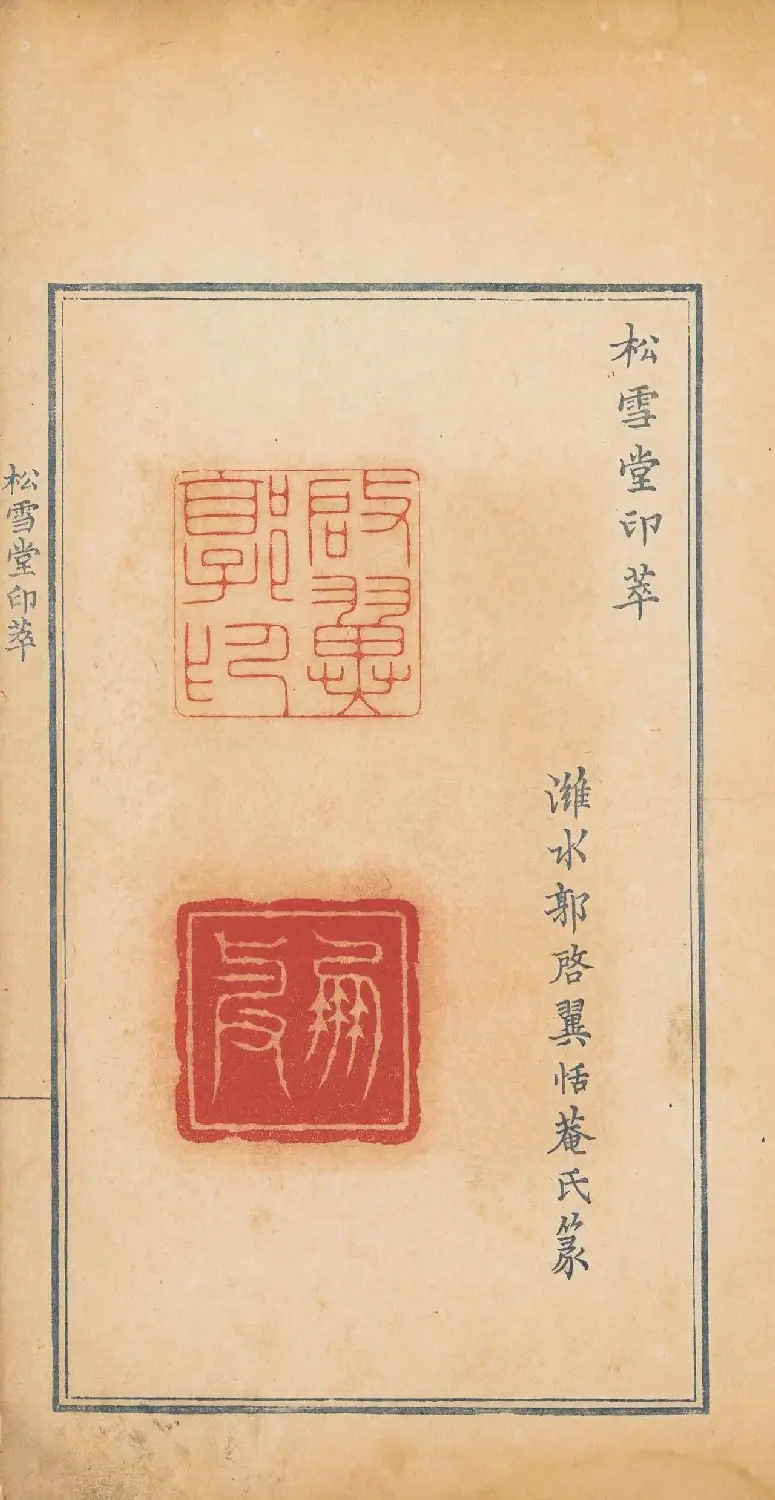 松雪堂印萃
濰水郭啓翼恬菴氏篆
啟翼
郭印
松雪堂印萃